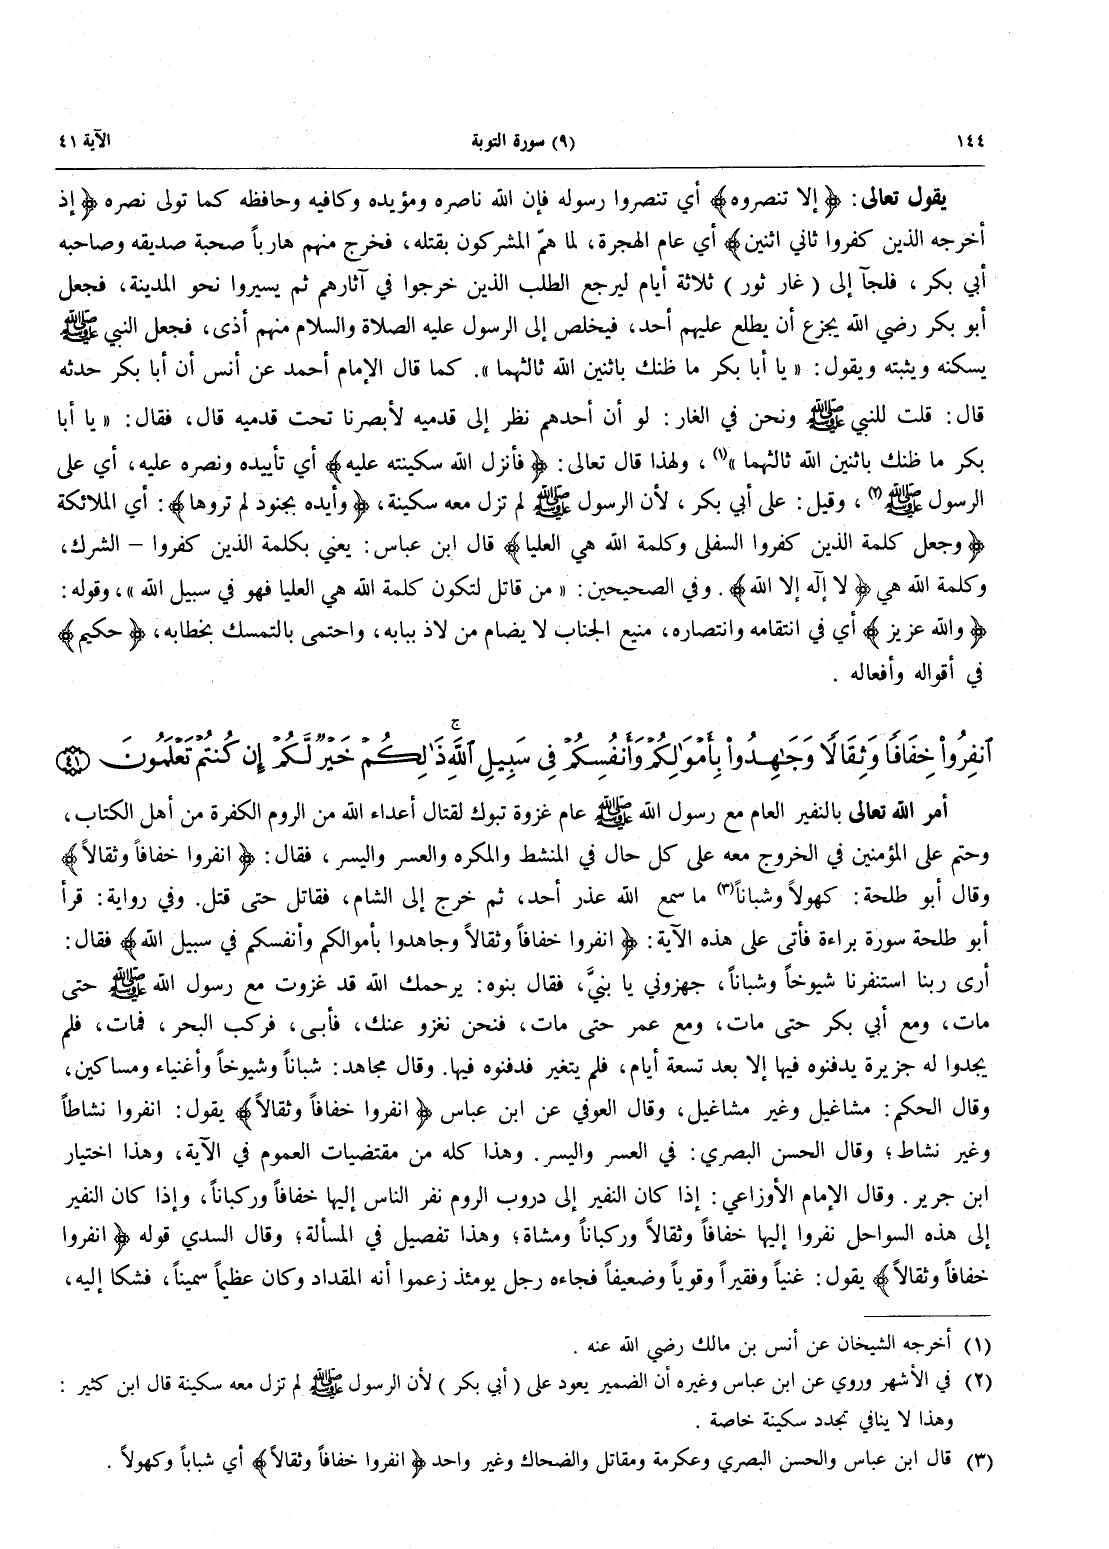 ١٤٤ (٩) سورة التوبة الآية ٤١
يقول تعالى: ﴿ إلا تنصروه﴾ أي تنصروا رسوله فإن الله ناصره ومؤيده وكافيه وحافظه كما تولى نصره ﴿ إذ
أخرجه الذين كفروا ثاني اثنين﴾ أي عام الهجرة، لما همّ المشركون بقتله، فخرج منهم هارباً صحبة صديقه وصاحبه
أبي بكر ، فلجآ إلى ( غار ثور ) ثلاثة أيام ليرجع الطلب الذين خرجوا في آثارهم ثم يسيروا نحو المدينة، فجعل
أبو بكر رضي الله يجزع أن يطلع عليهم أحد، فيخلص إلى الرسول عليه الصلاة والسلام منهم أذى، فجعل النبي ﷺ
يسكنه ويثبته ويقول: « يا أبا بكر ما ظنك باثنين الله ثالثهما ». كما قال الإمام أحمد عن أنس أن أبا بكر حدثه
قال: قلت للنبي ﷺ ونحن في الغار: لو أن أحدهم نظر إلى قدميه لأبصرنا تحت قدميه قال، فقال: « يا أبا
بكر ما ظنك باثنين الله ثالثهما »(١) ، ولهذا قال تعالى: ﴿ فأنزل الله سكينته عليه﴾ أي تأييده ونصره عليه، أي على
الرسول ﷺ(٢) ، وقيل: على أبي بكر ، لأن الرسول ﷺ لم تزل معه سكينة، ﴿ وأيده بجنود لم تروها﴾: أي الملائكة
﴿ وجعل كلمة الذين كفروا السفلى وكلمة الله هي العليا﴾ قال ابن عباس: يعني بكلمة الذين كفروا – الشرك،
وكلمة الله هي ﴿ لا إلٰه إلا الله﴾ . وفي الصحيحين: « من قاتل لتكون كلمة الله هي العليا فهو في سبيل الله »، وقوله:
﴿ والله عزيز ﴾ أي في انتقامه وانتصاره، منيع الجناب لا يضام من لاذ ببابه، واحتمى بالتمسك بخطابه، ﴿ حكيم﴾
في أقواله وأفعاله .
ٱنفِرُوا۟ خِفَافًا وَثِقَالًا وَجَٰهِدُوا۟ بِأَمْوَٰلِكُمْ وَأَنفُسِكُمْ فِى سَبِيلِ ٱللَّهِ ۚ ذَٰلِكُمْ خَيْرٌ لَّكُمْ إِن كُنتُمْ تَعْلَمُونَ ٤١
أمر الله تعالى بالنفير العام مع رسول الله ﷺ عام غزوة تبوك لقتال أعداء الله من الروم الكفرة من أهل الكتاب،
وحتم على المؤمنين في الخروج معه على كل حال في المنشط والمكره والعسر واليسر ، فقال: ﴿ انفروا خفافاً وثقالاً﴾
وقال أبو طلحة: كهولاً وشباناً(٣) ما سمع الله عذر أحد، ثم خرج إلى الشام، فقاتل حتى قتل. وفي رواية: قرأ
أبو طلحة سورة براءة فأتى على هذه الآية: ﴿ انفروا خفافاً وثقالاً وجاهدوا بأموالكم وأنفسكم في سبيل الله﴾ فقال:
أرى ربنا استنفرنا شيوخاً وشباناً، جهزوني يا بنيَّ، فقال بنوه: يرحمك الله قد غزوت مع رسول الله ﷺ حتى
مات، ومع أبي بكر حتى مات، ومع عمر حتى مات، فنحن نغزو عنك، فأبى، فركب البحر ، فمات، فلم
يجدوا له جزيرة يدفنوه فيها إلا بعد تسعة أيام، فلم يتغير فدفنوه فيها. وقال مجاهد: شباناً وشيوخاً وأغنياء ومساكين،
وقال الحكم: مشاغيل وغير مشاغيل، وقال العوفي عن ابن عباس ﴿ انفروا خفافاً وثقالاً﴾ يقول: انفروا نشاطاً
وغير نشاط؛ وقال الحسن البصري: في العسر واليسر. وهذا كله من مقتضيات العموم في الآية، وهذا اختيار
ابن جرير . وقال الإمام الأوزاعي: إذا كان النفير إلى دروب الروم نفر الناس إليها خفافاً وركباناً، وإذا كان النفير
إلى هذه السواحل نفروا إليها خفافاً وثقالاً وركباناً ومشاة؛ وهذا تفصيل في المسألة؛ وقال السدي قوله ﴿ انفروا
خفافاً وثقالاً﴾ يقول: غنياً وفقيراً وقوياً وضعيفاً فجاءه رجل يومئذ زعموا أنه المقداد وكان عظيماً سميناً، فشكا إليه،
(١) أخرجه الشيخان عن أنس بن مالك رضي الله عنه .
(٢) في الأشهر وروي عن ابن عباس وغيره أن الضمير يعود على ( أبي بكر ) لأن الرسول ﷺ لم تزل معه سكينة قال ابن كثير :
وهذا لا ينافي تجدد سكينة خاصة .
(٣) قال ابن عباس والحسن البصري وعكرمة ومقاتل والضحاك وغير واحد ﴿ انفروا خفافاً وثقالاً﴾ أي شباباً وكهولاً .